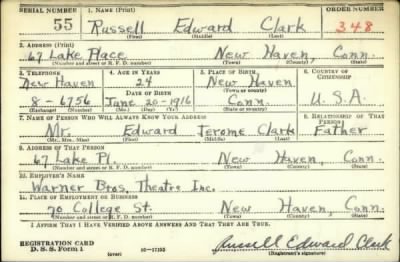 SERIAL NUMBER 1. NAME (Print) ORDER NUMBER
55 Russell Edward Clark 348
(First) (Middle) (Last)
2. ADDRESS (Print)
67 Lake Place New Haven, Conn.
(Number and street or R. F. D. number) (Town) (County) (State)
3. TELEPHONE 4. AGE IN YEARS 5. PLACE OF BIRTH 6. COUNTRY OF CITIZENSHIP
New Haven 24 New Haven
DATE OF BIRTH (Town or county)
8-6756 June 20-1916 Conn. U.S.A.
(Exchange) (Number) (Mo.) (Day) (Yr.) (State or country)
7. NAME OF PERSON WHO WILL ALWAYS KNOW YOUR ADDRESS 8. RELATIONSHIP OF THAT PERSON
Mr. Edward Jerome Clark Father
(Mr., Mrs., Miss) (First) (Middle) (Last)
9. ADDRESS OF THAT PERSON
67 Lake Pl. New Haven, Conn.
(Number and street or R. F. D. number) (Town) (County) (State)
10. EMPLOYER'S NAME
Warner Bros. Theatre Inc.
11. PLACE OF EMPLOYMENT OR BUSINESS
70 College St. New Haven, Conn.
(Number and street or R. F. D. number) (Town) (County) (State)
I AFFIRM THAT I HAVE VERIFIED ABOVE ANSWERS AND THAT THEY ARE TRUE.
REGISTRATION CARD
D. S. S. Form 1 (over) 16-17105 Russell Edward Clark
(Registrant's signature)